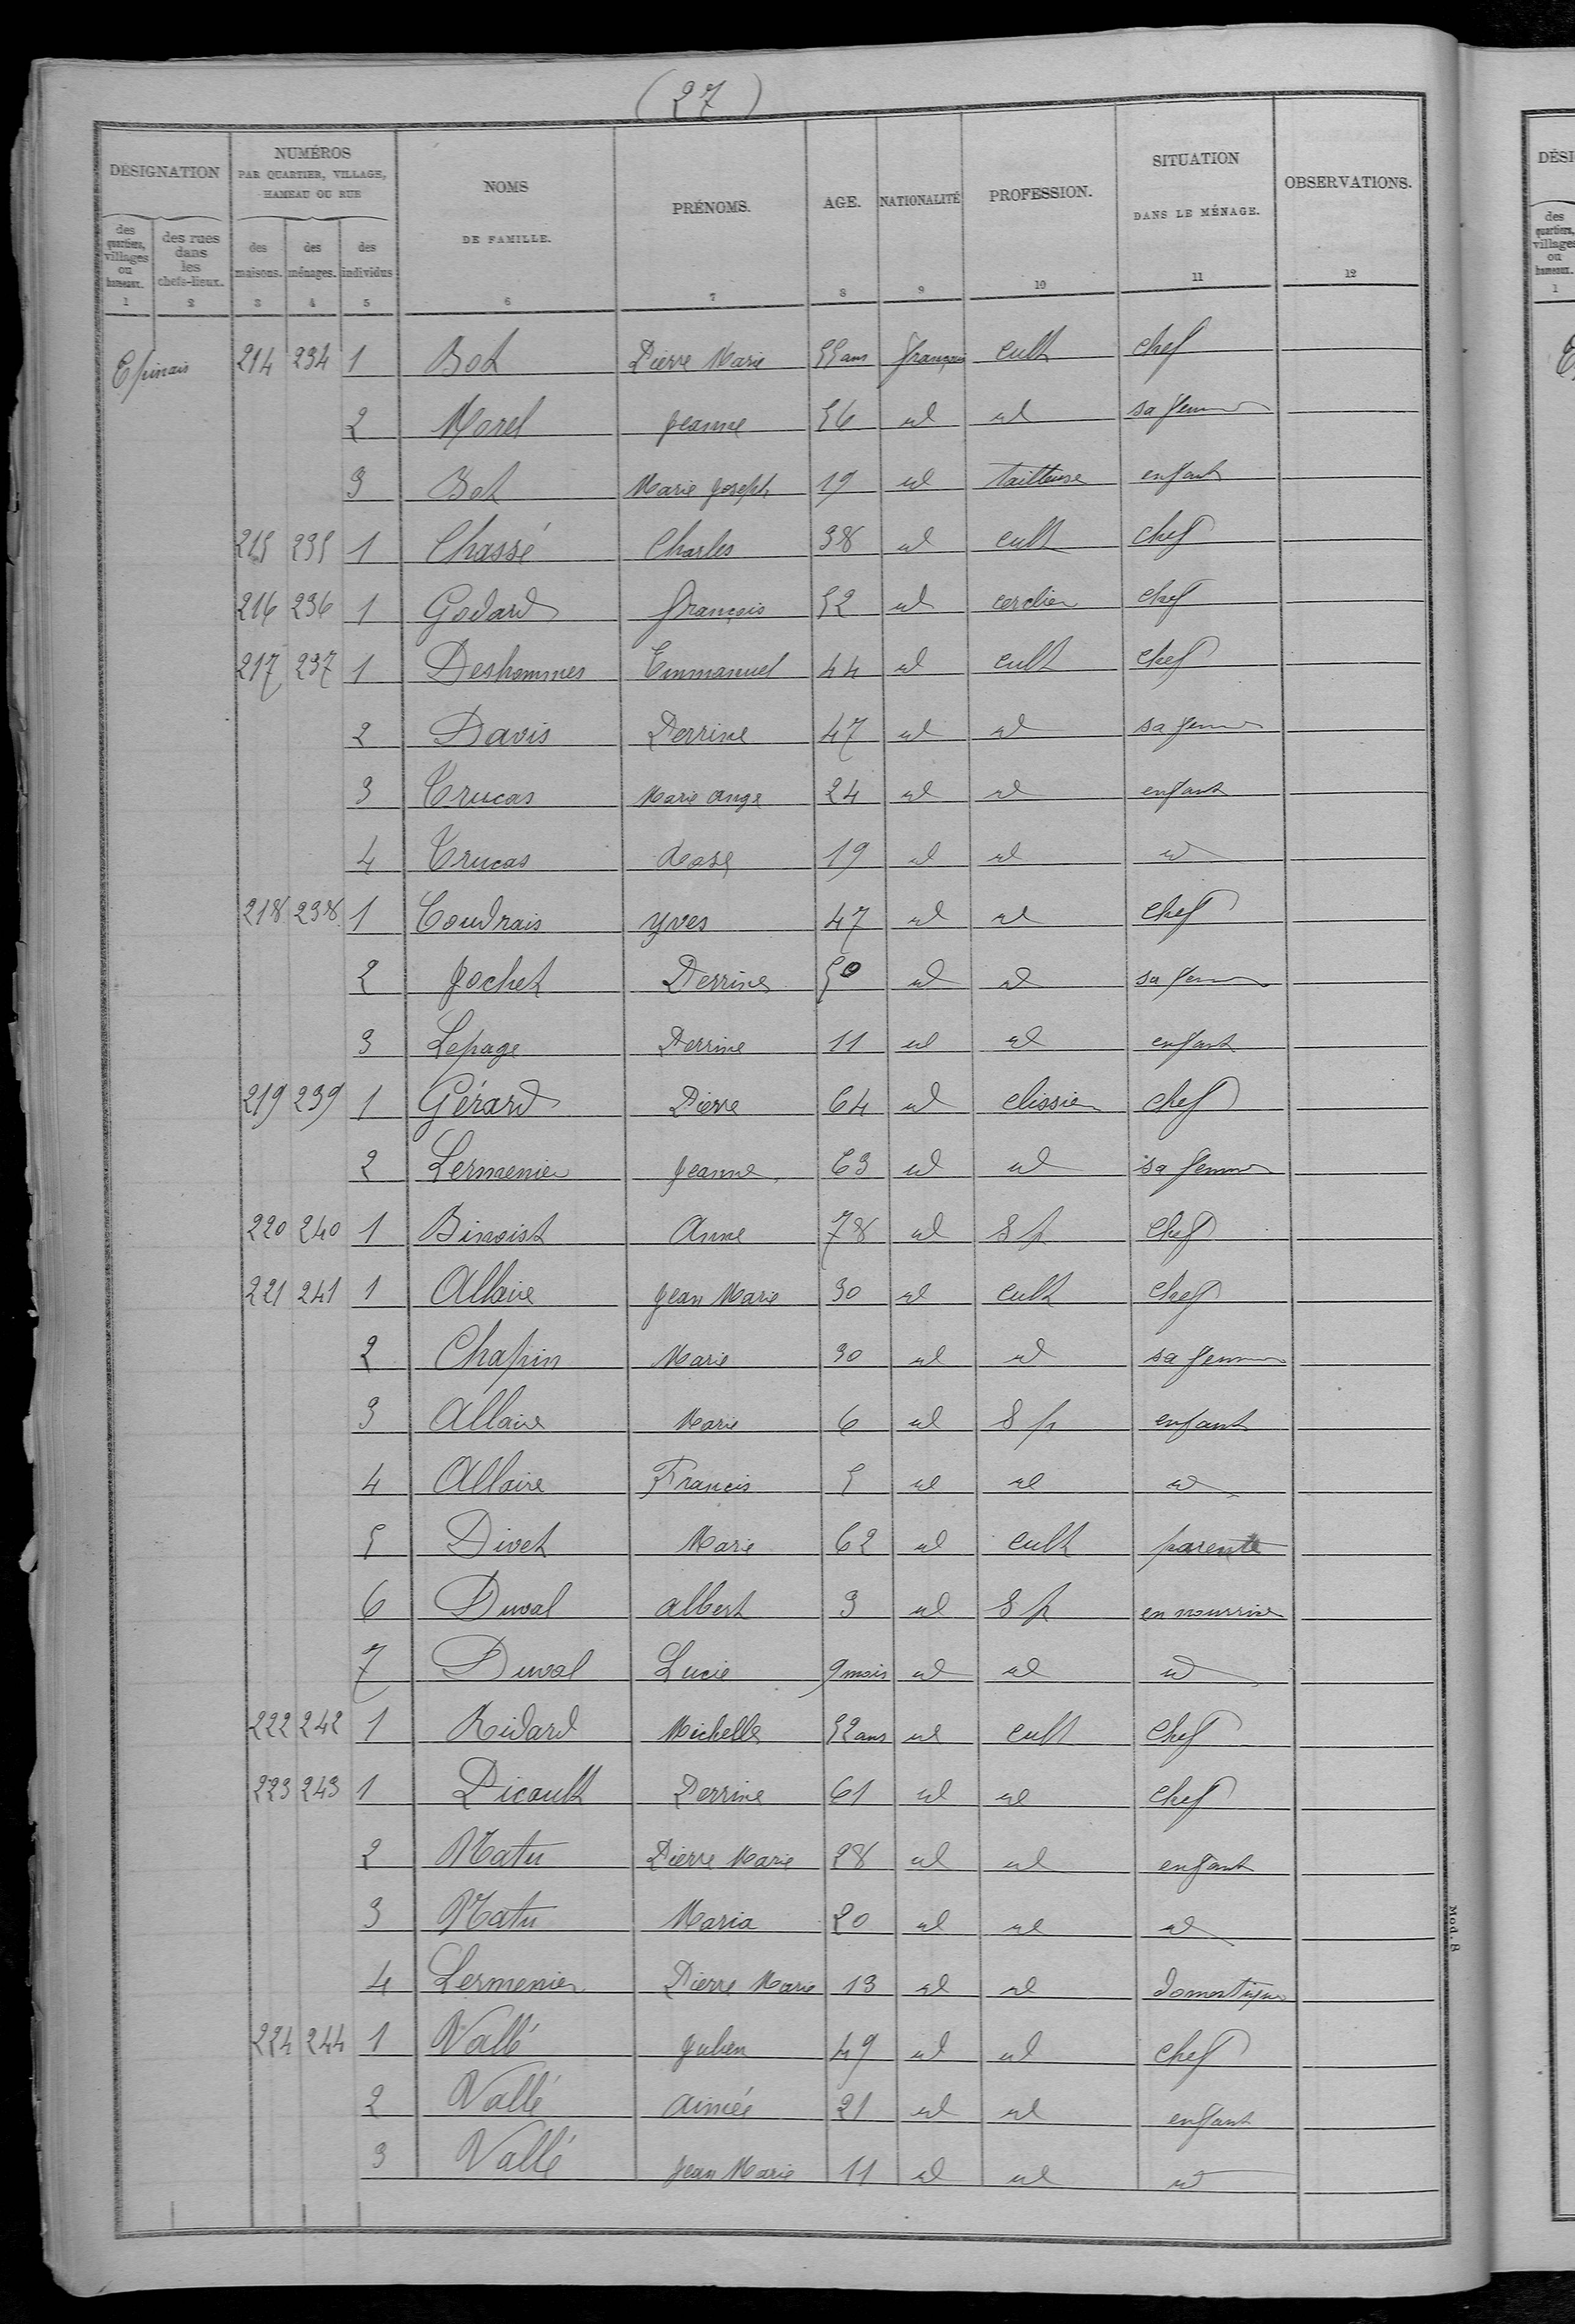 (27)
DÉSIGNATION
NUMÉROS
PAR QUARTIER, VILLAGE,
HAMEAU OU RUE
NOMS
DE FAMILLE.
PRÉNOMS.
AGE.
NATIONALITÉ
PROFESSION.
SITUATION
DANS LE MÉNAGE.
OBSERVATIONS.
des quartiers, villages ou hameaux.
des rues dans les chefs-lieux.
des maisons.
des ménages.
des individus
1 2 3 4 5 6 7 8 9 10 11 12
Epinais 214 234 1 Bot Pierre Marie 55 ans français cult chef
2 Morel Jeanne 56 id id sa femme
3 Bot Marie Joseph 19 id tailleuse enfant
215 235 1 Chassé Charles 38 id cult chef
216 236 1 Godard François 52 id cerclier chef
217 237 1 Deshommes Emmanuel 44 id cult chef
2 Davis Perrine 47 id id sa femme
3 Trucas Marie Ange 24 id id enfant
4 Trucas Rose 19 id id id
218 238 1 Coudrais Yves 47 id id chef
2 Jochet Perrine 50 id id sa femme
3 Lepage Perrine 11 id id enfant
219 239 1 Gérard Pierre 64 id clissier chef
2 Lermenier Jeanne 63 id id sa femme
220 240 1 Binoist Anne 78 id S p chef
221 241 1 Allaire Jean Marie 30 id cult chef
2 Chapin Marie 30 id id sa femme
3 Allaire Marie 6 id S p enfant
4 Allaire Francis 5 id id id
5 Divet Marie 62 id cult parente
6 Duval Albert 3 id S p en nourrice
7 Duval Lucie 9 mois id id id
222 242 1 Ridard Michelle 52 ans id cult chef
223 243 1 Picault Perrine 61 id id chef
2 Matu Pierre Marie 28 id id enfant
3 Matu Maria 20 id id id
4 Lermenier Pierre Marie 13 id id domestique
224 244 1 Vallé Julien 49 id id chef
2 Vallé Aimée 21 id id enfant
3 Vallé Jean Marie 11 id id id
Mod. 8
DÉSI
des quartiers, villages ou hameaux.
1